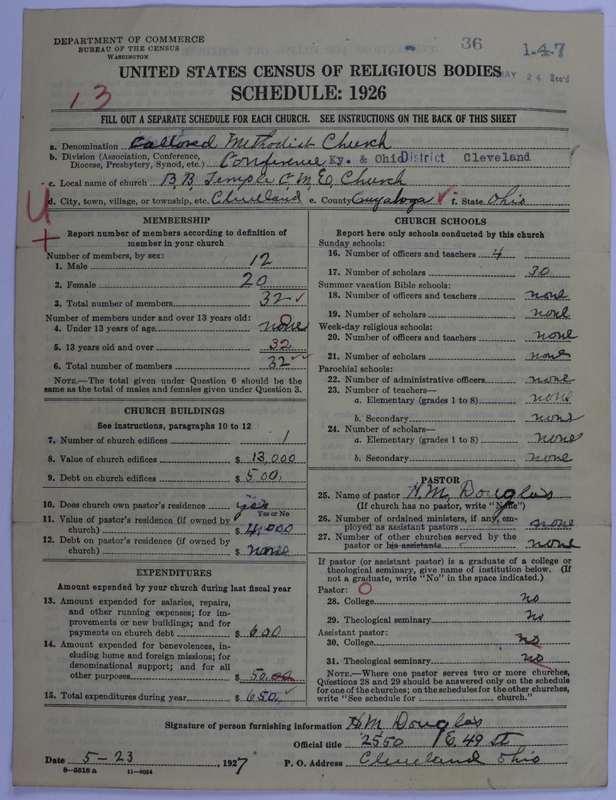 DEPARTMENT OF COMMERCE
BUREAU OF THE CENSUS
WASHINGTON
36
1-4-7
MAY 24 Rec'd
UNITED STATES CENSUS OF RELIGIOUS BODIES
SCHEDULE: 1926
13
FILL OUT A SEPARATE SCHEDULE FOR EACH CHURCH. SEE INSTRUCTIONS ON THE BACK OF THIS SHEET
a. Denomination Collored Methodist Church
b. Division (Association, Conference, Diocese, Presbytery, Synod, etc.) Conference Ky. & Ohio District Cleveland
c. Local name of church B,B, Temple C. M. E. Church
d. City, town, village, or township, etc. Cleveland e. County Cuyahoga f. State Ohio
MEMBERSHIP
Report number of members according to definition of
member in your church
Number of members, by sex:
1. Male 12
2. Female 20
3. Total number of members 32
Number of members under and over 13 years old:
4. Under 13 years of age none 0
5. 13 years old and over 32
6. Total number of members 32
NOTE.—The total given under Question 6 should be
same as the total of males and females given under Question 3.
CHURCH BUILDINGS
See instructions, paragraphs 10 to 12
7. Number of church edifices 1
8. Value of church edifices $ 13,000
9. Debt on church edifices $ 500,
10. Does church own pastor's residence yes
Yes or No
11. Value of pastor's residence (if owned by
church) $ 4,000
12. Debt on pastor's residence (if owned by
church) $ none
EXPENDITURES
Amount expended by your church during last fiscal year
13. Amount expended for salaries, repairs,
and other running expenses; for im-
provements or new buildings; and for
payments on church debt $ 600
14. Amount expended for benevolences, in-
cluding home and foreign missions; for
denominational support; and for all
other purposes $ 50.00
15. Total expenditures during year $ 650,
CHURCH SCHOOLS
Report here only schools conducted by this church
Sunday schools:
16. Number of officers and teachers 4
17. Number of scholars 30
Summer vacation Bible schools:
18. Number of officers and teachers none
19. Number of scholars none
Week-day religious schools:
20. Number of officers and teachers none
21. Number of scholars none
Parochial schools:
22. Number of administrative officers none
23. Number of teachers—
a. Elementary (grades 1 to 8) none
b. Secondary none
24. Number of scholars—
a. Elementary (grades 1 to 8) none
b. Secondary none
PASTOR
25. Name of pastor H. M. Douglas
(If church has no pastor, write "None")
26. Number of ordained ministers, if any, em-
ployed as assistant pastors none
27. Number of other churches served by the
pastor or his assistants none
If pastor (or assistant pastor) is a graduate of a college or
theological seminary, give name of institution below. (If
not a graduate, write "No" in the space indicated.)
Pastor: 0
28. College no
29. Theological seminary no
Assistant pastor:
30. College no
31. Theological seminary no
NOTE.—Where one pastor serves two or more churches,
Questions 28 and 29 should be answered only on the schedule
for one of the churches; on the schedules for the other churches,
write "See schedule for church."
Signature of person furnishing information H M Douglas
Official title 2550 E. 49 St
Date 5-23, 1927 P. O. Address Cleveland Ohio
8-5518a 11-9094